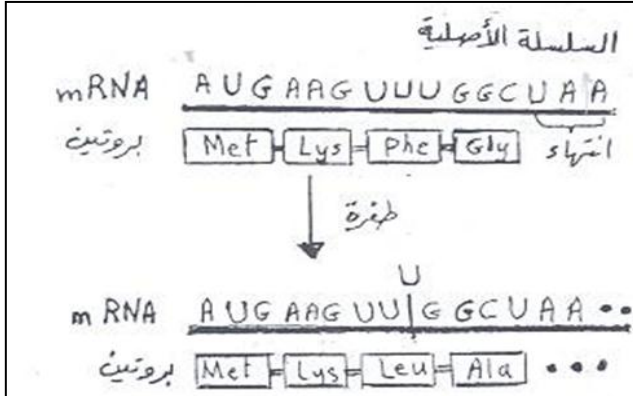 السلسلة الأصلية
mRNA AUGAAGUUUGGCUAA
بروتين Met Lys Phe Gly انتهاء
طفرة
U
mRNA AUGAAGUUGGCUAA••
بروتين Met Lys Leu Ala •••